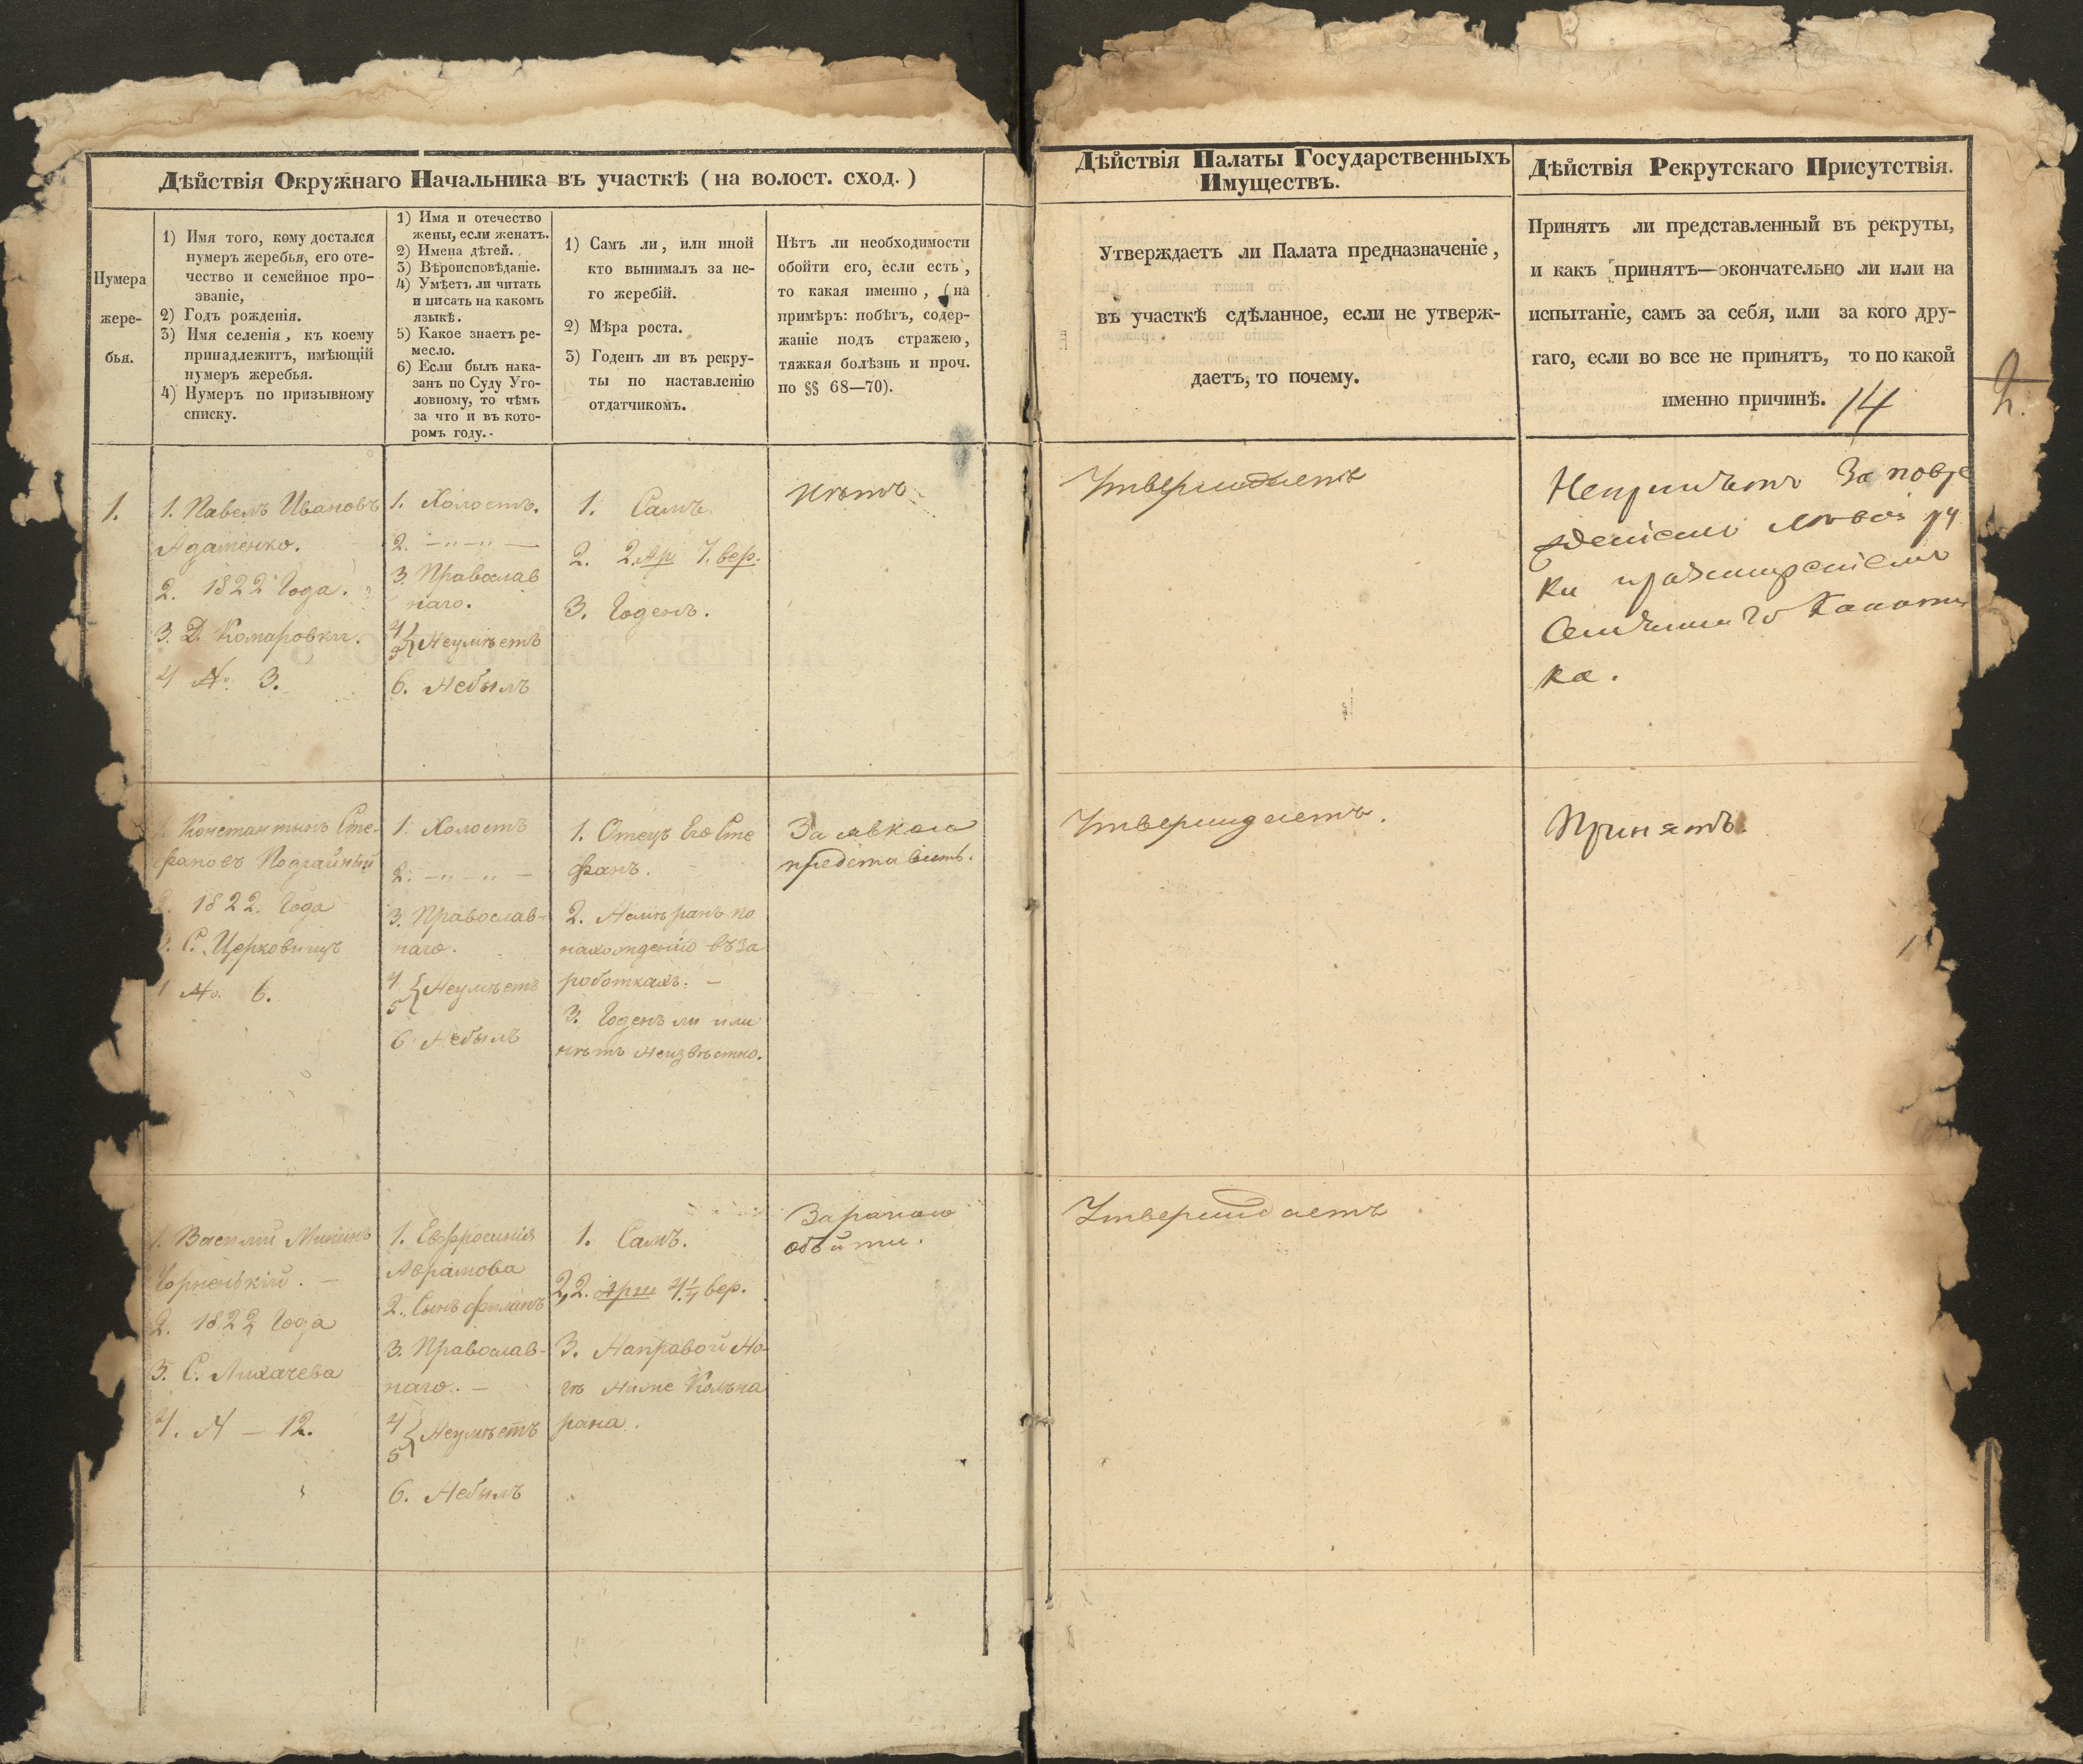 Дѣйствія Окружнаго Начальника въ участкѣ (на волост. сход.)
Нумера
жере-
бья.
1) Имя того, кому достался
нумеръ жеребья, его оте-
чество и семейное про-
званіе,
2) Годъ рожденія.
3) Имя селенія, къ коему
принадлежитъ, имѣющій
нумеръ жеребья.
4) Нумеръ по призывному
списку.
1) Имя и отечество
жены, если женатъ.
2) Имена дѣтей.
3) Вѣроисповѣданіе.
4) Умѣетъ ли читать
и писать на какомъ
языкѣ.
5) Какое знаетъ ре-
месло.
6) Если былъ нака-
занъ по Суду Уго-
ловному, то чѣмъ
за что и въ кото-
ромъ году.
1) Самъ ли, или иной
кто вынималъ за не-
го жеребій.
2) Мѣра роста.
3) Годенъ ли въ рекру-
ты по наставленію
отдатчикомъ.
Нѣтъ ли необходимости
обойти его, если есть,
то какая именно, (на
примѣръ: побѣгъ, содер-
жаніе подъ стражею,
тяжкая болѣзнь и проч.
по §§ 68—70).
1.
1. Павелъ Ивановъ
Адаменко.
2. 1822 Года.
3. Д. Комаровки.
4 №. 3.
1. Холостъ.
2. —„—„—
3. Православ
наго.
4
5 } Неумѣетъ
6. Небылъ
1. Самъ
2. 2. Ар 7. вер.
3. Годенъ.
Нѣтъ
1. Константинъ Сте-
фановъ Подгайный
2. 1822. Года
3. С. Церковищъ
4 №. 6.
1. Холостъ
2. —„—„—
3. Православ-
наго.
4
5 } Неумѣетъ
6 Небылъ
1. Отецъ Его Сте
фанъ.
2. Немѣранъ по
нахожденію въ за
роботкахъ. —
3. Годенъ ли или
нѣтъ Неизвѣстно.
За явкою
представить.
1. Василий Мининъ
Чорненькій. —
2. 1822 Года
3. С. Лихачева
4. № — 12.
1. Евфросинія
Аврамова
2. Сынъ Филипъ
3. Православ-
наго. —
4
5 } Неумѣетъ
6. Небылъ
1. Самъ.
2, 2. Арш 4.¼ вер.
3. Направой Но-
гѣ Ниже Колѣна
рана.
За раною
обойти.
Дѣйствія Палаты Государственныхъ
Имуществъ.
Утверждаетъ ли Палата предназначеніе,
въ участкѣ сдѣланное, если не утверж-
даетъ, то почему.
Утверждаетъ
Утверждаетъ.
Утверждаетъ
Дѣйствія Рекрутскаго Присутствія.
Принятъ ли представленный въ рекруты,
и какъ принятъ—окончательно ли или на
испытаніе, самъ за себя, или за кого дру-
гаго, если во все не принятъ, то по какой
именно причинѣ. 14
2.
Непринятъ За повре
жденіемъ лѣвой ру
ки
ка.
Принятъ.